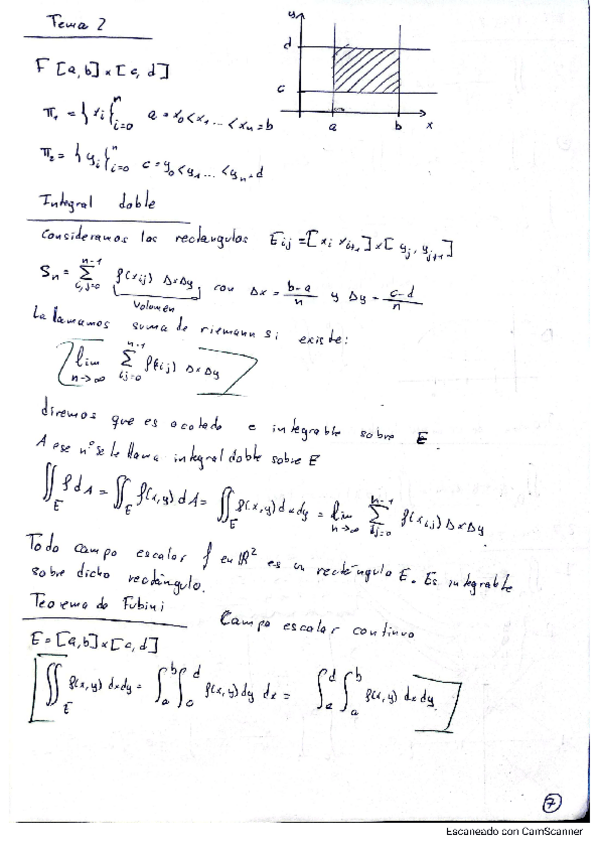 Tema 2
y
d
c
a b x
F [a,b]×[c,d]
π₁ = {xi}ⁿi=0 a = x₀ < x₁ ... < xn = b
π₂ = {yi}ⁿi=0 c = y₀ < y₁ ... < yn = d
Integral doble
Consideramos los rectángulos Eij = [xi xi+1]×[yj, yj+1]
Sn = Σⁿ⁻¹i,j=0 f(xij) ΔxΔy con Δx = b-a/n y Δy = c-d/n
Volumen
La llamamos suma de riemann si existe:
lim n→∞ Σⁿ⁻¹ij=0 f(xij) ΔxΔy
diremos que es acotado e integrable sobre E.
A ese nº se le llama integral doble sobre E
∬E f dA = ∬E f(x,y) dA = ∬E f(x,y) dxdy = lim n→∞ Σⁿ⁻¹ij=0 f(xi,j) ΔxΔy
Todo campo escalar f en ℝ² es un rectángulo E. Es integrable
sobre dicho rectángulo.
Teorema de Fubini Campo escalar continuo
E = [a,b]×[c,d]
∬E f(x,y) dxdy = ∫ₐᵇ ∫ᵈ f(x,y) dy dx = ∫ᵈ ∫ₐᵇ f(x,y) dx dy
7
Escaneado con CamScanner